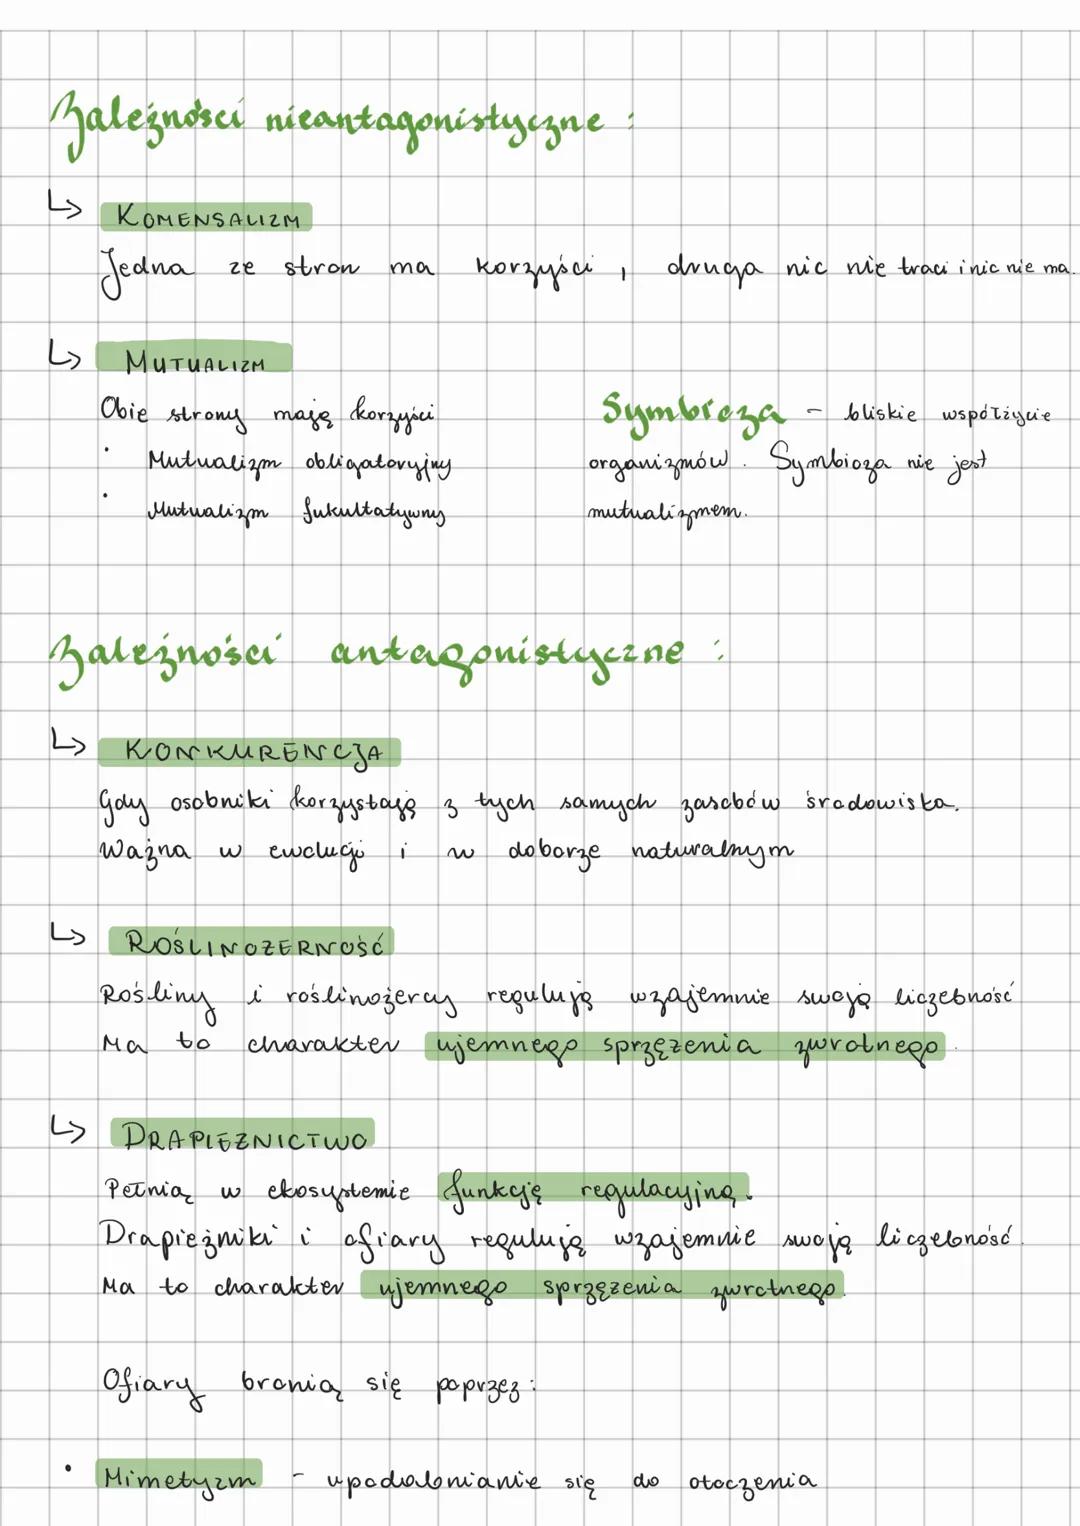 Zależności nieantagonistyczne :
↳ KOMENSALIZM
Jedna ze stron ma korzyści, druga nic nie traci i nic nie ma.
↳ MUTUALIZM
Obie strony mają korzyści
• Mutualizm obligatoryjny
• Mutualizm fukultatywny
Symbioza - bliskie współżycie
organizmów. Symbioza nie jest
mutualizmem.
Zależności antagonistyczne :
↳ KONKURENCJA
Gdy osobniki korzystają z tych samych zasobów środowiska.
Ważna w ewolucji i w doborze naturalnym
↳ ROŚLINOŻERNOŚĆ
Rośliny i roślinożercy regulują wzajemnie swoją liczebność
Ma to charakter ujemnego sprzężenia zwrotnego.
↳ DRAPIEŻNICTWO
Pełnią w ekosystemie funkcję regulacyjną.
Drapieżniki i ofiary regulują wzajemnie swoją liczebność.
Ma to charakter ujemnego sprzężenia zwrotnego.
Ofiary bronią się poprzez :
• Mimetyzm - upodabnianie się do otoczenia